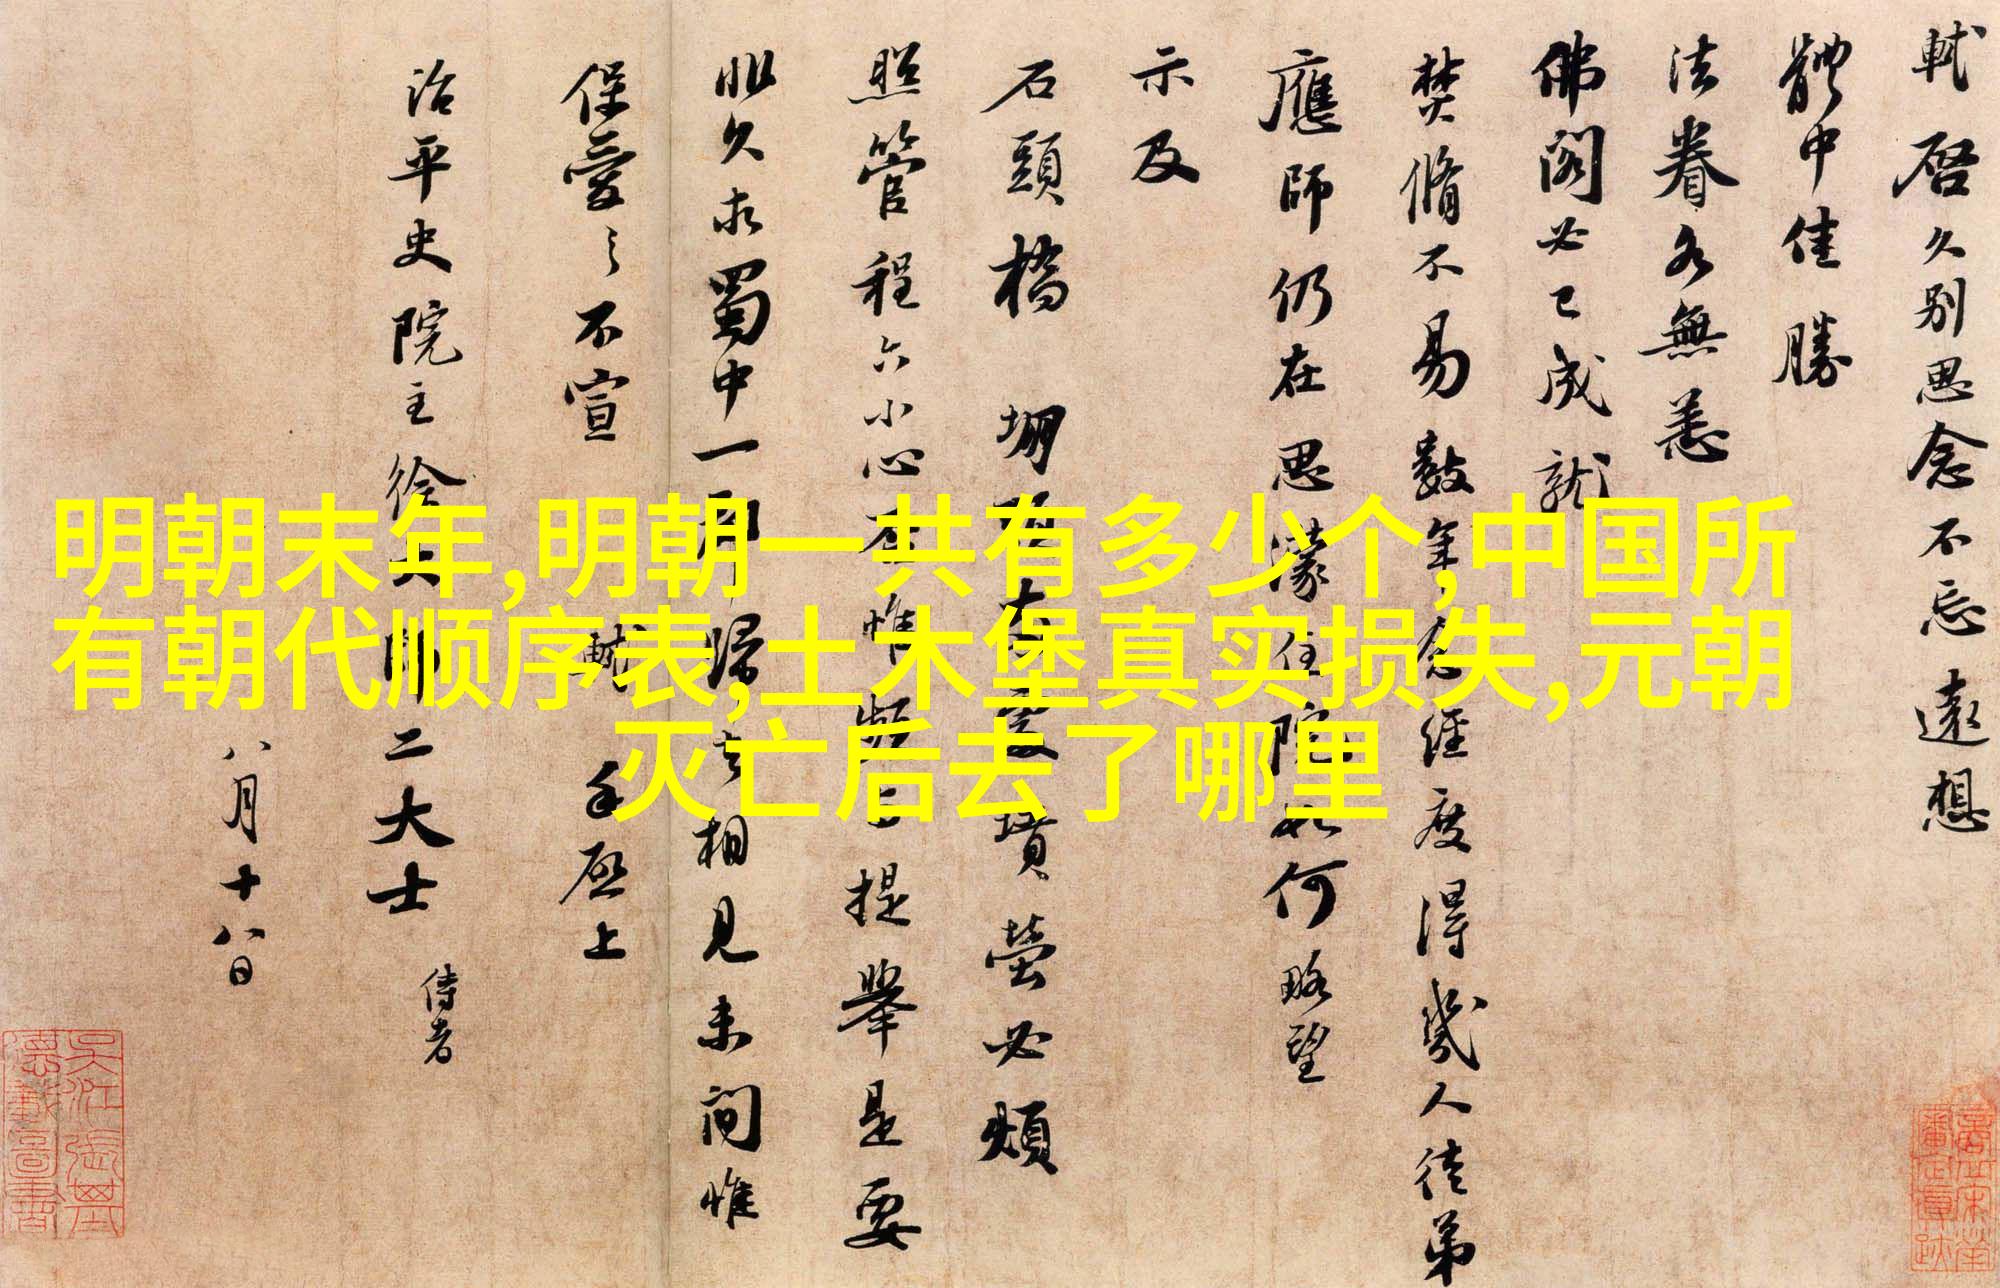 軾啓久别思念不忘遠想
體中佳勝
法眷各無恙
佛閣必已成就
焚脩不易數年念經度得幾人徒弟
應師仍在思濛住院如何略望
示及
石頭橋
墳塋必煩
照管程六小心否惟頻與提舉是要
非久求蜀中一郡歸去相見未間惟
保愛之不宣
軾手啓上
治平史院主徐大師二大士
侍者
八月十八日
明朝末年,明朝一共有多少个,中国所
有朝代顺序表,土木堡真实损失,元朝
灭亡后去了哪里